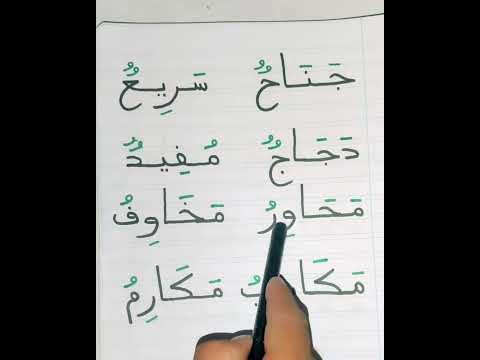 جَنَاحٌ سَرِيعٌ
دَجَاجٌ مُفِيدٌ
مَحَاوِرُ مَخَاوِفُ
مَكَارِمُ